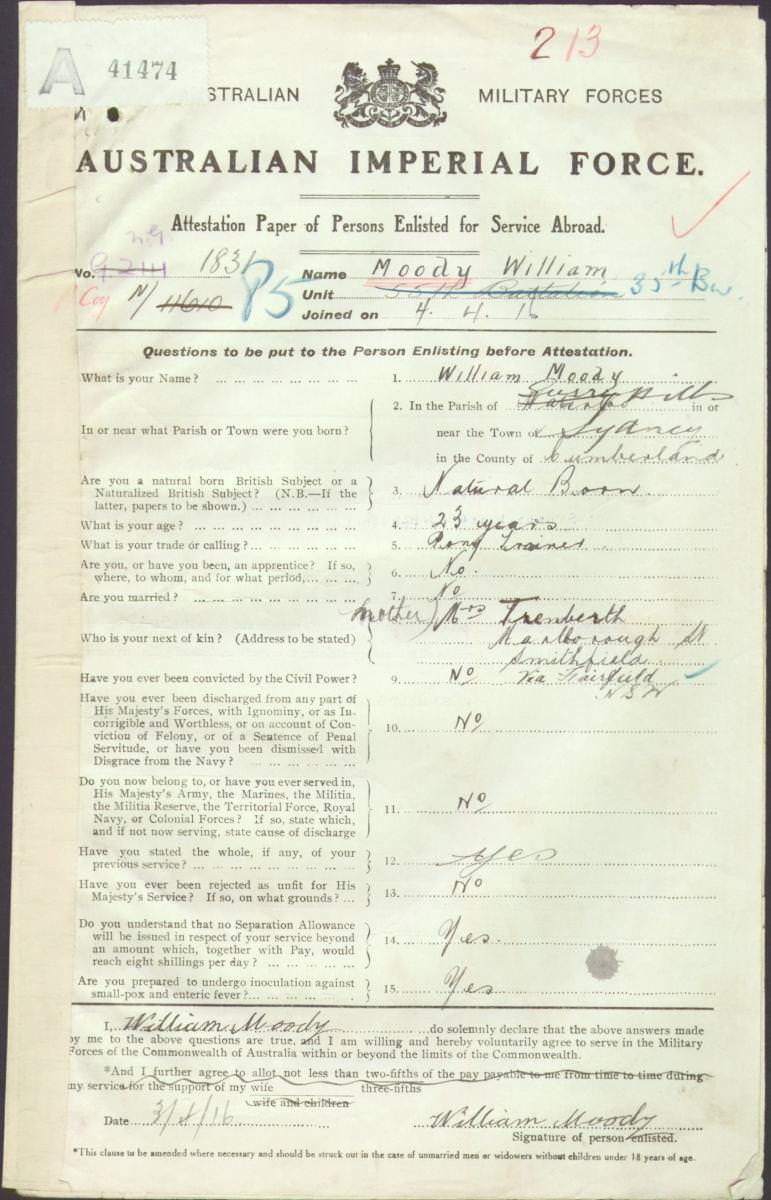 2 13
A 41474
STRALIAN MILITARY FORCES
AUSTRALIAN IMPERIAL FORCE.
Attestation Paper of Persons Enlisted for Service Abroad.
No. 1831 Name Moody William
Coy N/ 11610 85 Unit 55th Battalion 35th Bn.
Joined on 4. 4. 16
Questions to be put to the Person Enlisting before Attestation.
What is your Name? ... 1. William Moody
In or near what Parish or Town were you born? 2. In the Parish of Surry Hills in or
near the Town of Sydney
in the County of Cumberland
Are you a natural born British Subject or a
Naturalized British Subject? (N.B.—If the
latter, papers to be shown.) ... 3. Natural Born.
What is your age? ... 4. 23 years
What is your trade or calling? ... 5. Pony Trainer.
Are you, or have you been, an apprentice? If so,
where, to whom, and for what period, ... 6. No.
Are you married? ... 7. No
(mother) Mrs Trenberth
Who is your next of kin? (Address to be stated) Marlborough St
Smithfield
Have you ever been convicted by the Civil Power? 9. No Via Fairfield
N.S.W
Have you ever been discharged from any part of
His Majesty's Forces, with Ignominy, or as In-
corrigible and Worthless, or on account of Con-
viction of Felony, or of a Sentence of Penal
Servitude, or have you been dismissed with
Disgrace from the Navy? ... 10. No
Do you now belong to, or have you ever served in,
His Majesty's Army, the Marines, the Militia,
the Militia Reserve, the Territorial Force, Royal
Navy, or Colonial Forces? If so, state which,
and if not now serving, state cause of discharge 11. No
Have you stated the whole, if any, of your
previous service? ... 12. yes
Have you ever been rejected as unfit for His
Majesty's Service? If so, on what grounds? ... 13. No
Do you understand that no Separation Allowance
will be issued in respect of your service beyond
an amount which, together with Pay, would
reach eight shillings per day? ... 14. Yes.
Are you prepared to undergo inoculation against
small-pox and enteric fever? ... 15. Yes
I, William Moody do solemnly declare that the above answers made
by me to the above questions are true, and I am willing and hereby voluntarily agree to serve in the Military
Forces of the Commonwealth of Australia within or beyond the limits of the Commonwealth.
*And I further agree to allot not less than two-fifths of the pay payable to me from time to time during
my service for the support of my wife three-fifths
wife and children
Date 3/4/16 William Moody
Signature of person enlisted.
*This clause to be amended where necessary and should be struck out in the case of unmarried men or widowers without children under 18 years of age.